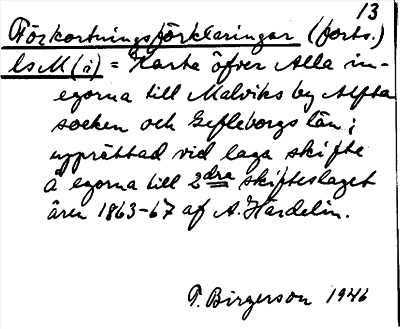 13
Förkortningsförklaringar (forts.)
lsM(å) = Karta öfver Alla in-
egorna till Malviks by Alfta
socken och Gefleborgs län;
upprättad vid laga skifte
å egorna till 2dra skifteslaget
åren 1863-67 af A. Hårdelin.
T. Birgerson 1946